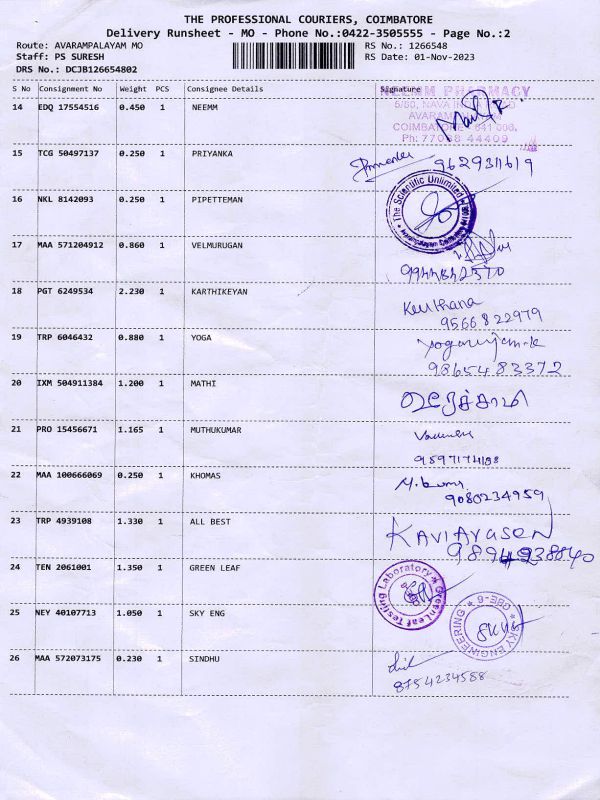 THE PROFESSIONAL COURIERS, COIMBATORE
Delivery Runsheet - MO - Phone No.:0422-3505555 - Page No.:2
Route: AVARAMPALAYAM MO
RS No.: 1266548
Staff: PS SURESH
RS Date: 01-Nov-2023
DRS No.: DCJB126654802
S No Consignment No Weight PCS Consignee Details Signature
NEEMM PHARMACY
14 EDQ 17554516 0.450 1 NEEMM
5/80, NAVA
AVARAM
COIMBATORE - 641 006.
Ph: 77088 44409
15 TCG 50497137 0.250 1 PRIYANKA
9629311619
16 NKL 8142093 0.250 1 PIPETTEMAN
The Scientific Unlimited
Avarampalayam
17 MAA 571204912 0.860 1 VELMURUGAN
9944842570
18 PGT 6249534 2.230 1 KARTHIKEYAN
Keerthana
9566822979
19 TRP 6046432 0.880 1 YOGA
9865483372
20 IXM 504911384 1.200 1 MATHI
21 PRO 15456671 1.165 1 MUTHUKUMAR
9597174108
22 MAA 100666069 0.250 1 KHOMAS
9080234959
23 TRP 4939108 1.330 1 ALL BEST
KAVIARASEN
24 TEN 2061001 1.350 1 GREEN LEAF
Green Leaf Testing Laboratory
25 NEY 40107713 1.050 1 SKY ENG
SKY ENGINEERING
CBE-6
26 MAA 572073175 0.230 1 SINDHU
8754234588